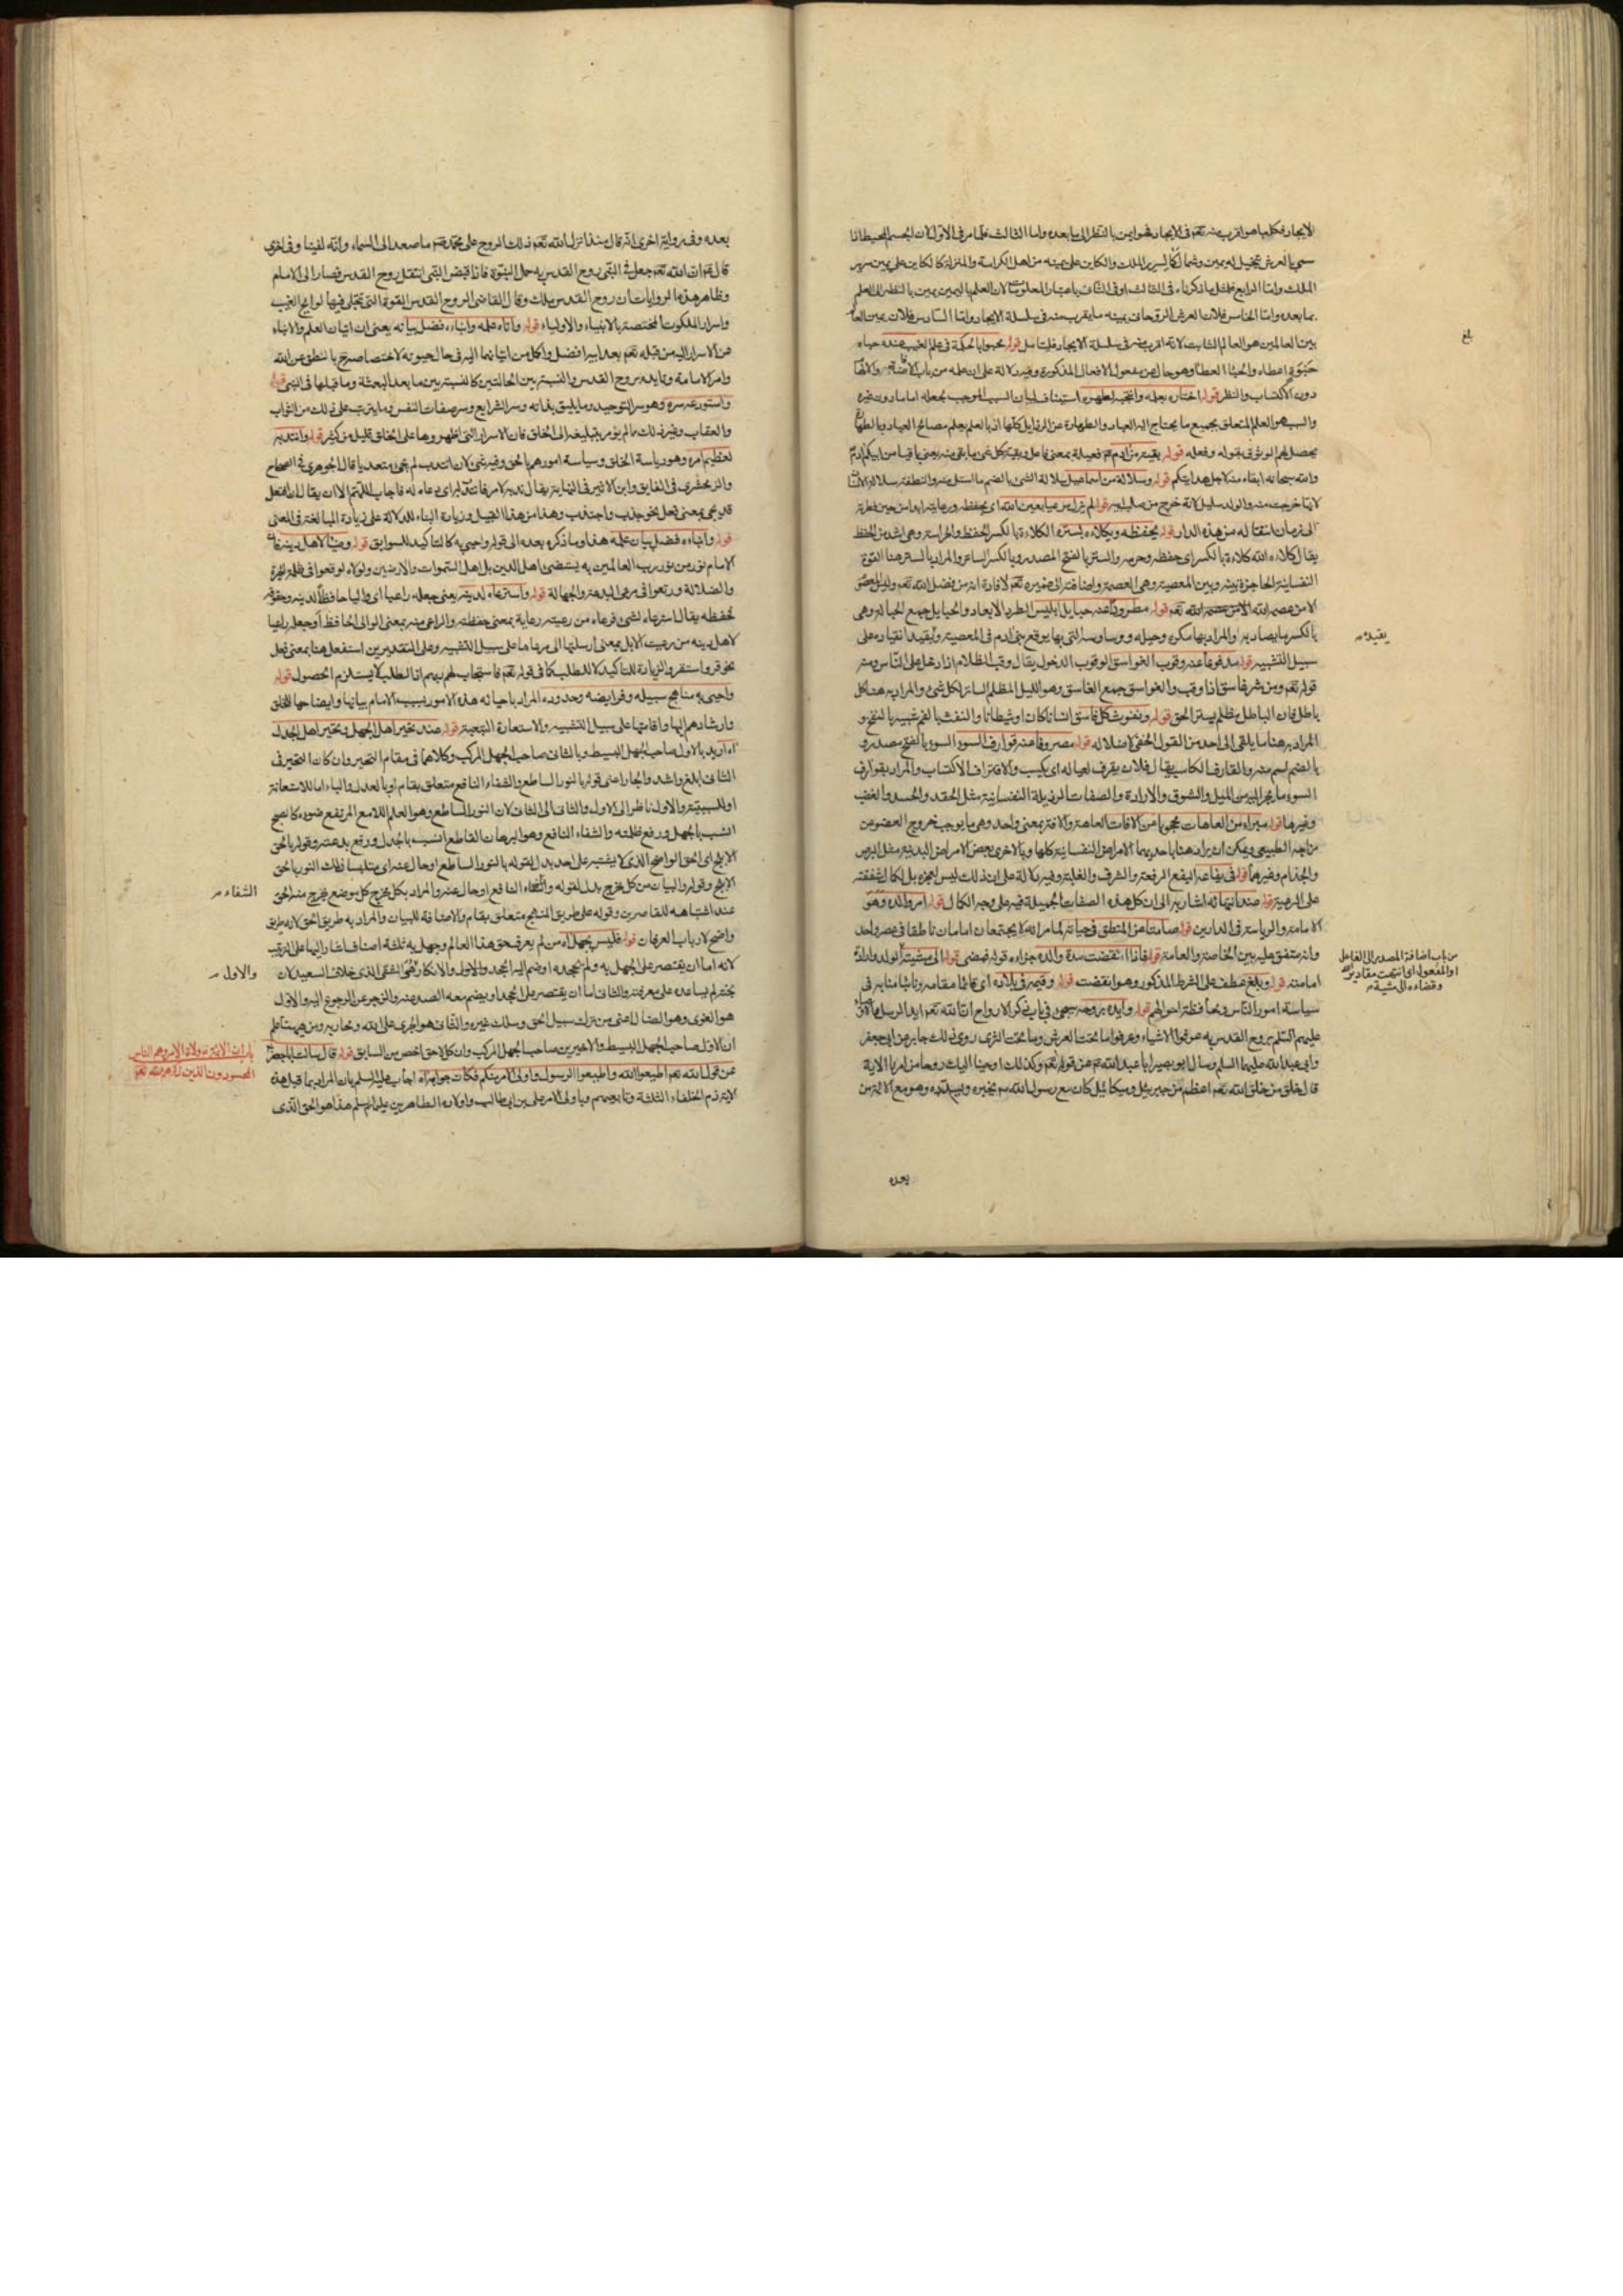 الايجاد فكل ما هو اقرب منه تعم فى الايجاد فهو ايمن بالنظر الى ما بعده واما الثالث فلما مر فى الاول لان الجسم المحيط اذا
سمى بالعرش تخيل له يمين وشمال كالسرير الملك والكاين على يمينه من اهل الكرامة والمنزلة كالكاين على يمين سرير
الملك واما الرابع فلمثل ما ذكرناه فى الثالث او فى الثانى باعتبار المعلومات لان العلم باليمين يمين بالنظر الى العلم
بما بعده واما الخامس فلان العرش الروحانى يمينه ما يقرب منه فى سلسلة الايجاد واما السادس فلان يمين العالم
بين العالمين هو العالم الثابت لانه اقرب منه فى سلسلة الايجاد فليتامل قوله محبوا بالحكمة فى علم الغيب عنده حباه
حبوة اعطاه والحباء العطا وهو حال عن مفعول الافعال المذكورة وفيه دلالة على ان علمه من باب الافاضة والالهام
دون الاكتساب والنظر قوله اختاره بعلمه وانتجبه لطهره استيناف لبيان السبب الموجب لجعله اماما دون غيره
والسبب هو العلم المتعلق بجميع ما يحتاج اليه العباد والطهارة عن الرذايل كلها اذ بالعلم يعلم مصالح العباد وبالطهارة
يحصل لهم الوثوق بقوله وفعله قوله بقية من آدم عم فعيلة بمعنى فاعل وبقية كل شئ ما بقى منه يعنى باقيا من ابيكم آدم
والله سبحانه ابقاه منه لاجل هدايتكم قوله وسلالة من اسماعيل سلالة الشئ بالضم ما استل منه والنطفة سلالة الانسان
لانها خرجت منه والولد سليل لانه خرج من صلب ابيه قوله لم يزل مرعيا بعين الله اى بحفظه ورعايته ابدا من حين فطرته
الى زمان انتقاله من هذه الدار قوله يحفظه ويكلاءه بستره الكلاءة بالكسر الحفظ والحراسة وهى اشد من الحفظ
يقال كلاءه الله كلاءة بالكسر اى حفظه وحرسه والستر بالفتح المصدر وبالكسر الساتر والمراد بالستر هنا القوة
النفسانية الحاجزة بينه وبين المعصية وهى العصمة واضافته الى ضميره تعم لافادة انه من فضل الله تعم وليس المعصوم
الا من عصمه الله تعم قوله مطرودا عنه حبايل ابليس الطرد الابعاد والحبايل جمع الحبالة وهى
بالكسر ما يصاد به والمراد بها مكره وحيله ووساوسه التى بها يوقع بنى آدم فى المعصية وبقيد انقياده على
سبيل التشبيه قوله مدفوعا عنه وقوب الغواسق الوقوب الدخول يقال وقب الظلام اذا دخل على الناس ومنه
قوله تعم ومن شر غاسق اذا وقب والغواسق جمع الغاسق وهو الليل المظلم الساتر لكل شئ والمراد به هنا كل
باطل فان الباطل مظلم يستر الحق قوله ونفوث كل فاسق انسانا كان او شيطانا والنفث بالفم شبيه بالنفخ و
المراد به هنا ما يلقى الى احد من القول الخفى لاضلاله قوله مصروفا عنه قوارف السوء السوء بالفتح مصدر و
بالضم اسم منه والقارف الكاسب يقال فلان يقرف لعياله اى يكسب والاقتراف الاكتساب والمراد بقوارف
السوء ما يجر اليه من الميل والشوق والارادة والصفات الرذيلة النفسانية مثل الحقد والحسد والغضب
وغيرها قوله مبراء من العاهات محجوبا من الافات العاهة والافة بمعنى واحد وهى ما يوجب خروج العضو من
مزاجه الطبيعى ويمكن ان يراد هنا باحديهما الامراض النفسانية كلها وبالاخرى بعض الامراض البدنية مثل البرص
والجذام وغيرهما قوله فى يفاعه اليفع الرفعة والشرف والغلبة وفيه دلالة على ان ذلك ليس لعجزه بل لكمال شفقته
على الرعية قوله عند انتهائه اشار به الى ان كل هذه الصفات الجميلة فيه على وجه الكمال قوله امر والده وهو
الامامة والرياسة فى الدارين قوله صامتا عن المنطق فى حياته لما مر انه لا يجتمعان امامان ناطقا فى عصر واحد
وانه متفق عليه بين الخاصة والعامة قوله فاذا انقضت مدة والده جزاءه قوله فمضى قوله الى مشيته الولد وارادة
امامته قوله وبلغ عطف على الشرط المذكور وهو انقضت قوله وقيمه فى بلاده اى قائما مقامه ونائبا منابه فى
سياسة امور الناس ومحافظة احوالهم قوله وايده بروحه سيجئ فى باب ذكر الارواح ان الله تعم ايد الرسل والائمة
عليهم السلم بروح القدس به عرفوا الاشياء وعرفوا ما تحت العرش وما تحت الثرى روى ذلك جابر عن ابى جعفر
وابى عبد الله عليهما السلم وسال ابو بصير ابا عبد الله عم عن قوله تعم وكذلك اوحينا اليك روحا من امرنا الاية
قال خلق من خلق الله تعم اعظم من جبرئيل وميكائيل كان مع رسول الله صم يخبره ويسدده وهو مع الائمة من
بعده
بلغ
يقيد
من باب اضافة المصدر الى الفاعل
او المفعول اى انتهت مقادير الله
وقضاءه الى مشية
بعده وفى رواية اخرى انه قال منذ انزل الله تعم ذلك الروح على محمد صم ما صعد الى السماء وانه لفينا وفى اخرى
قال عم ان الله تعم جعل فى النبى روح القدس به حمل النبوة فاذا قبض النبى انتقل روح القدس فصار الى الامام
وظاهر هذه الروايات ان روح القدس ملك وقال القاضى الروح القدس القوة التى تتجلى فيها لوايح الغيب
واسرار الملكوت المختصة بالانبياء والاولياء قوله وآتاه علمه وانباءه فضل بيانه يعنى ان اتيان العلم والانباء
عن الاسرار اليه من قبله تعم بعد ابيه افضل واكمل من اتيانهما اليه فى حال حيوته لاختصاصه ح بالنطق عن الله
وامر الامامة وتايده بروح القدس والنسبة بين الحالتين كالنسبة بين ما بعد البعثة وما قبلها فى النبى قوله
واستودعه سره وهو سر التوحيد وما يليق بذاته وسر الشرايع وسر صفات النفس وما يترتب على ذلك من الثواب
والعقاب وغير ذلك ما لم يؤمر بتبليغه الى الخلق فان الاسرار التى اظهروها على الخلق قليل من كثير قوله وانتدبه
لعظيم امره وهو رياسة الخلق وسياسة امورهم بالحق وفيه شئ لان انتدب لم يجئ متعديا قال الجوهرى فى الصحاح
والزمخشرى فى الفايق وابن الاثير فى النهاية يقال ندبه لامر فانتدب له اى دعاه له فاجاب اللهم الا ان يقال افتعل
قد يجئ بمعنى فعل نحو جذب واجتذب وهذا من هذا القبيل وزيادة البناء للدلالة على زيادة المبالغة فى المعنى
قوله وانباءه فضل بيان علمه هذا وما ذكره بعده الى قوله واحيى به كالتاكيد للسوابق قوله وضياء لاهل دينه فان
الامام نور من نور رب العالمين به يستضئ اهل الدين بل اهل السموات والارضين ولولاه لوقعوا فى ظلمة الحيرة
والضلالة ورتعوا فى مرعى البدعة والجهالة قوله واسترعاه لدينه يعنى جعله راعيا اى واليا حافظا لدينه وحقوقه
لحفظه يقال استرعاه لشئ فرعاه من رعيته رعاية بمعنى حفظته والراعى منه بمعنى الوالى الحافظ او جعله راعيا
لاهل دينه من رعيت الابل بمعنى ارسلتها الى مرعاها على سبيل التشبيه وعلى التقديرين استفعل هنا بمعنى فعل
نحو قر واستقر والزيادة للتاكيد لا للطلب كما فى قوله تعم فاستجاب لهم ربهم اذ الطلب لا يستلزم الحصول قوله
واحيى به مناهج سبيله وفرايضه وحدوده المراد باحيائه هذه الامور بسبب الامام بيانها وايضاحها للخلق
وارشادهم اليها واقامتها على سبيل التشبيه والاستعارة التبعية قوله عند تحير اهل الجهل وتحيير اهل الجدل
اه اريد بالاول صاحب الجهل البسيط وبالثانى صاحب الجهل المركب وكلاهما فى مقام التحير وان كان التحير فى
الثانى ابلغ واشد والجار اعنى قوله بالنور الساطع والشفاء النافع متعلق بقام او بالعدل والباء اما للاستعانة
او للسببية والاول ناظر الى الاول والثانى الى الثانى لان النور الساطع وهو العلم اللامع المرتفع ضوءه كالصبح
انسب بالجهل ورفع ظلمته والشفاء النافع وهو البرهان القاطع انسب بالجدل ورفع بدعته وقوله بالحق
الابلج اى الحق الواضح الذى لا يشتبه على احد بدل لقوله بالنور الساطع او حال عنه اى متلبسا ذلك النور بالحق
الابلج وقوله والبيان من كل مخرج بدل لقوله والشفاء النافع او حال عنه والمراد بكل مخرج كل موضع يخرج منه الحق
عند اشتباهه للقاصرين وقوله على طريق المنهج متعلق بقام والاضافة للبيان والمراد به طريق الحق لانه طريق
واضح لارباب العرفان قوله فليس يجهل اه من لم يعرف حق هذا العالم وجهل به ثلثة اصناف اشار اليها على الترتيب
لانه اما ان يقتصر على الجهل به ولم يجحده او ضم اليه الجحد والاول والانكار فهو الشقى الذى خلاف السعيد لان
بخته لم يساعده على معرفته والثانى اما ان يقتصر على الجحد او يضم معه الصد عنه والزجر عن الرجوع اليه والاول
هو الغوى وهو الضال اعنى من ترك سبيل الحق وسلك غيره والثانى هو الجرى على الله ومحاربه ومن هيهنا علم
ان الاول صاحب الجهل البسيط والاخيرين صاحب الجهل المركب وان كل لاحق اخص من السابق قوله قال سالت ابا جعفر
عن قول الله تعم اطيعوا الله واطيعوا الرسول واولى الامر منكم فكان جوابه اه اجاب عليه السلم بان المراد بما قبل هذه
الاية ذم الخلفاء الثلثة وتابعيهم وباولى الامر على بن ابى طالب واولاده الطاهرين عليهم السلم هذا هو الحق الذى
الشفاء
والاول
باب ان الائمة ولاة الامر وهم الناس
المحسودون الذين ذكرهم الله تعم